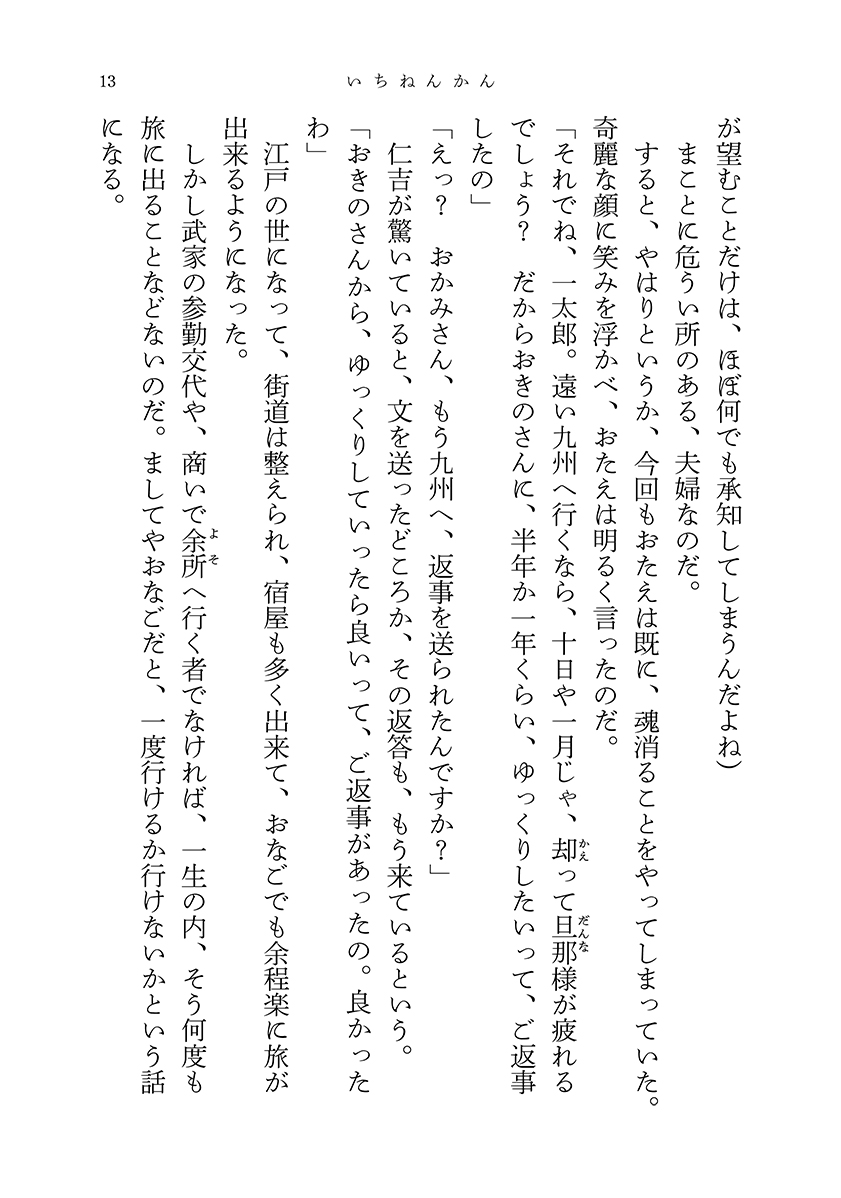 13
いちねんかん
が望むことだけは、ほぼ何でも承知してしまうんだよね）
まことに危うい所のある、夫婦なのだ。
すると、やはりというか、今回もおたえは既に、魂消ることをやってしまっていた。
奇麗な顔に笑みを浮かべ、おたえは明るく言ったのだ。
「それでね、一太郎。遠い九州へ行くなら、十日や一月じゃ、却って旦那様が疲れる
かえ
だんな
でしょう？　だからおきのさんに、半年か一年くらい、ゆっくりしたいって、ご返事
したの」
「えっ？　おかみさん、もう九州へ、返事を送られたんですか？」
仁吉が驚いていると、文を送ったどころか、その返答も、もう来ているという。
「おきのさんから、ゆっくりしていったら良いって、ご返事があったの。良かった
わ」
江戸の世になって、街道は整えられ、宿屋も多く出来て、おなごでも余程楽に旅が
出来るようになった。
しかし武家の参勤交代や、商いで余所へ行く者でなければ、一生の内、そう何度も
よそ
旅に出ることなどないのだ。ましてやおなごだと、一度行けるか行けないかという話
になる。